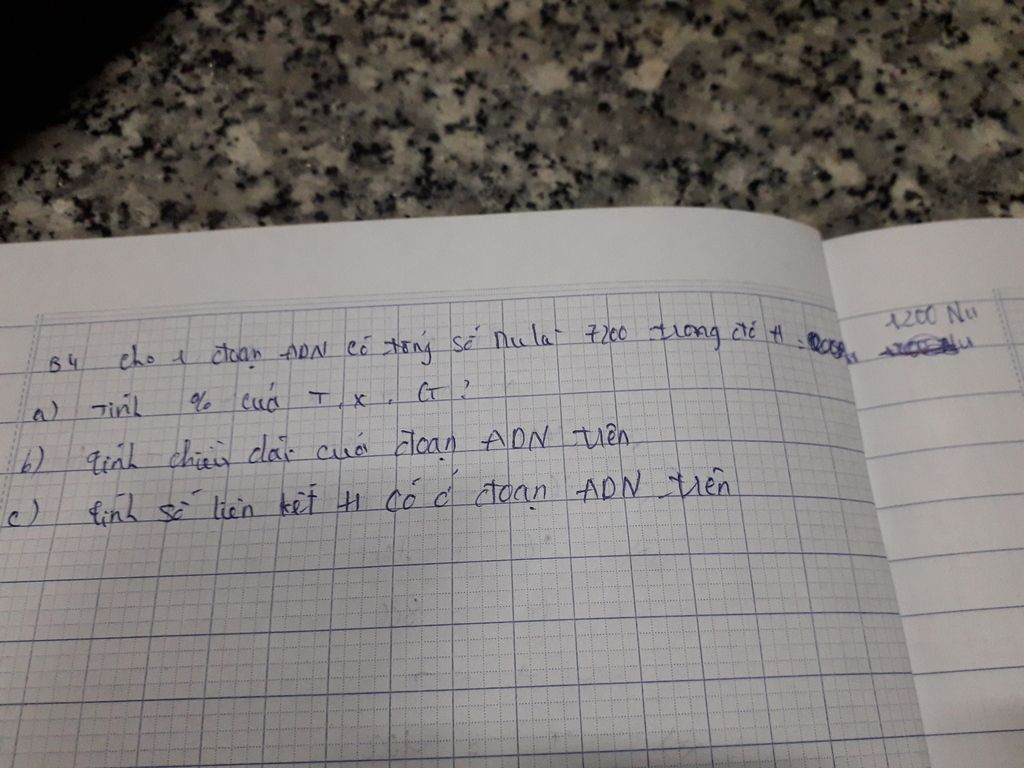 B4 cho 1 đoạn ADN có tổng số Nu là 7200 trong đó A = 1200 Nu
a) Tính % của T, X, G?
b) tính chiều dài của đoạn ADN trên
c) tính số liên kết H có ở đoạn ADN trên